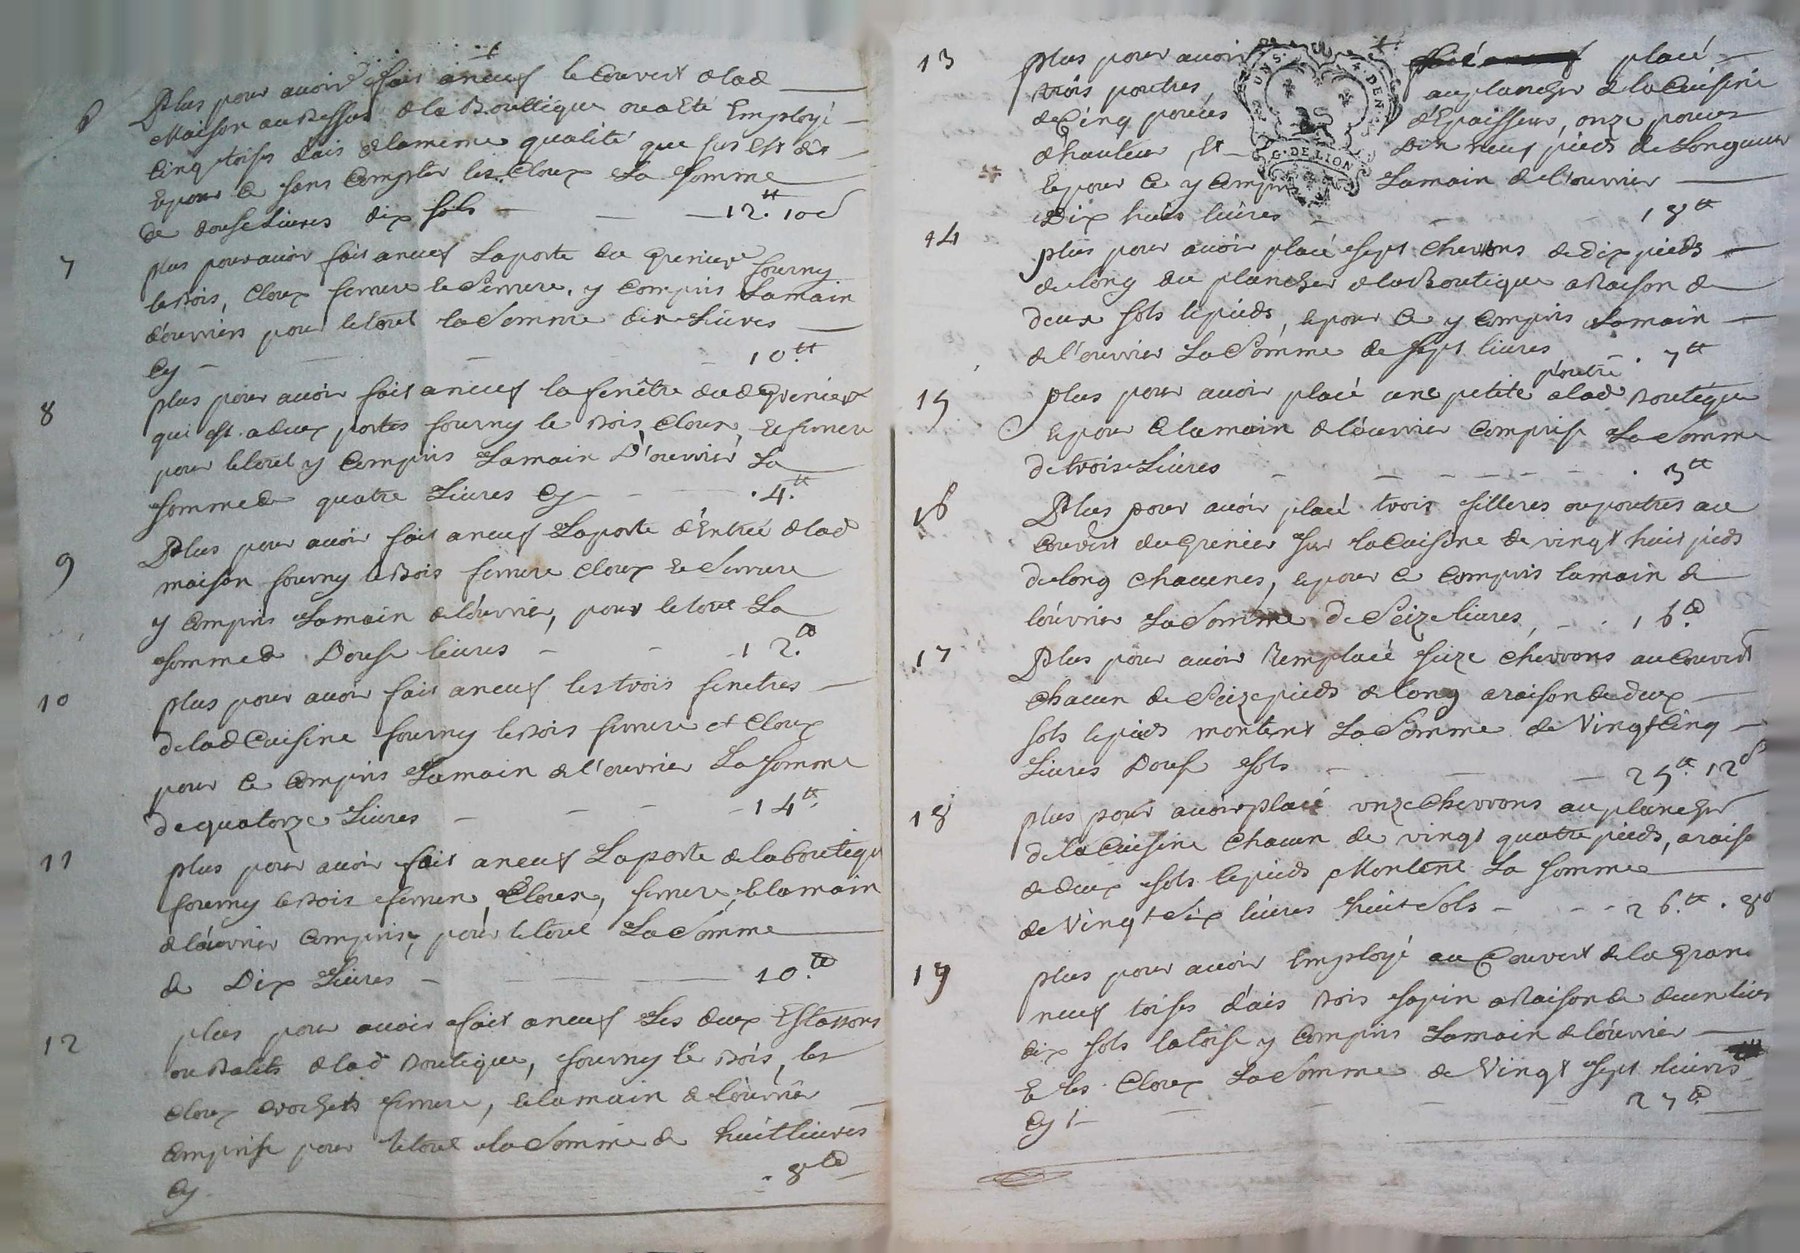 6 Plus pour avoir fait aneuf le Couvert de lad
Maison au dessus de la Bouttique ou a Eté Employé
Cinq toises d'ais de la meme qualité que sus est dit
Et pour Ce sans Compter les Cloux La somme
de douse Livres dix sols 12.tt 10s
7 plus pour avoir fait aneuf La porte du Grenier fourny
le Bois, Cloux ferrure le Serrure, y Compris La main
d'ouvriers pour le tout la Somme dix Livres
Cy 10.tt
8 plus pour avoir fait aneuf la fenêtre dud Grenier
qui est a deux portes fourny le Bois Cloux, Et ferrure
pour le tout y Compris La main D'ouvrier La
somme de quatre Livres Cy .4.tt
9 Plus pour avoir fait aneuf La porte d'Entrée de lad
maison fourny le Bois ferrure Cloux Et Serrure
y Compris La main de l'ouvrier, pour le tout La
somme de Douse livres 12.tt
10 plus pour avoir fait aneuf les trois fenetres
de lad Cuisine fourny le Bois ferrure et Cloux
pour Ce Compris La main de l'ouvrier La somme
de quatorze Livres 14tt.
11 plus pour avoir fait aneuf La porte de la boutique
fourny le Bois Cloux, ferrure, Et la main
de l'ouvrier Compris, pour le tout La Somme
de Dix Livres 10.tt
12 plus pour avoir fait aneuf Les deux
ou de lad Boutique, fourny le Bois, les
Cloux Crochets ferrure, Et la main de l'ouvrier
Comprise pour le tout la Somme de huit livres
Cy .8tt
13 plus pour avoir placé
trois poutres, au plancher de la Cuisine
de Cinq pouces d'Epaisseur, onze pouces
d'hauteur, Et Dix neuf pieds de Longueur
Et pour Ce y Compris La main de l'ouvrier
Dix huit livres 18tt
G. DE LION
14 plus pour avoir placé sept Chevrons de Dix pieds
de long au plancher de lad Boutique a Raison de
deux sols le pieds, et pour Ce y Compris La main
de l'ouvrier La Somme de sept livres 7tt
15 plus pour avoir placé une petite poutre a lad Boutique
Et pour Ce la main de l'ouvrier Comprise La Somme
de trois Livres 3tt
16 Plus pour avoir placé trois filleres ou poutres au
Couvert du Grenier sur la Cuisine de vingt huit pieds
de long chacunes, et pour Ce Compris la main de
l'ouvrier La Somme de Seize livres, 16.tt
17 Plus pour avoir Remplacé seize chevrons au Couvert
chacun de Seize pieds de long a raison de deux
sols le pieds montent La Somme de Vingt Cinq
Livres Douse sols 25tt. 12s
18 plus pour avoir placé onze Chevrons au plancher
de la Cuisine Chacun de vingt quatre pieds, a raison
de deux sols le pieds Montent La somme
de Vingt Six livres huit Sols 26.tt. 8s
19 plus pour avoir Employé au Couvert de la Grange
neuf toises d'ais Bois sapin a Raison de deux livres
dix sols la toise y Compris La main de l'ouvrier
Et les Cloux La Somme de Vingt sept livres
Cy 27.tt